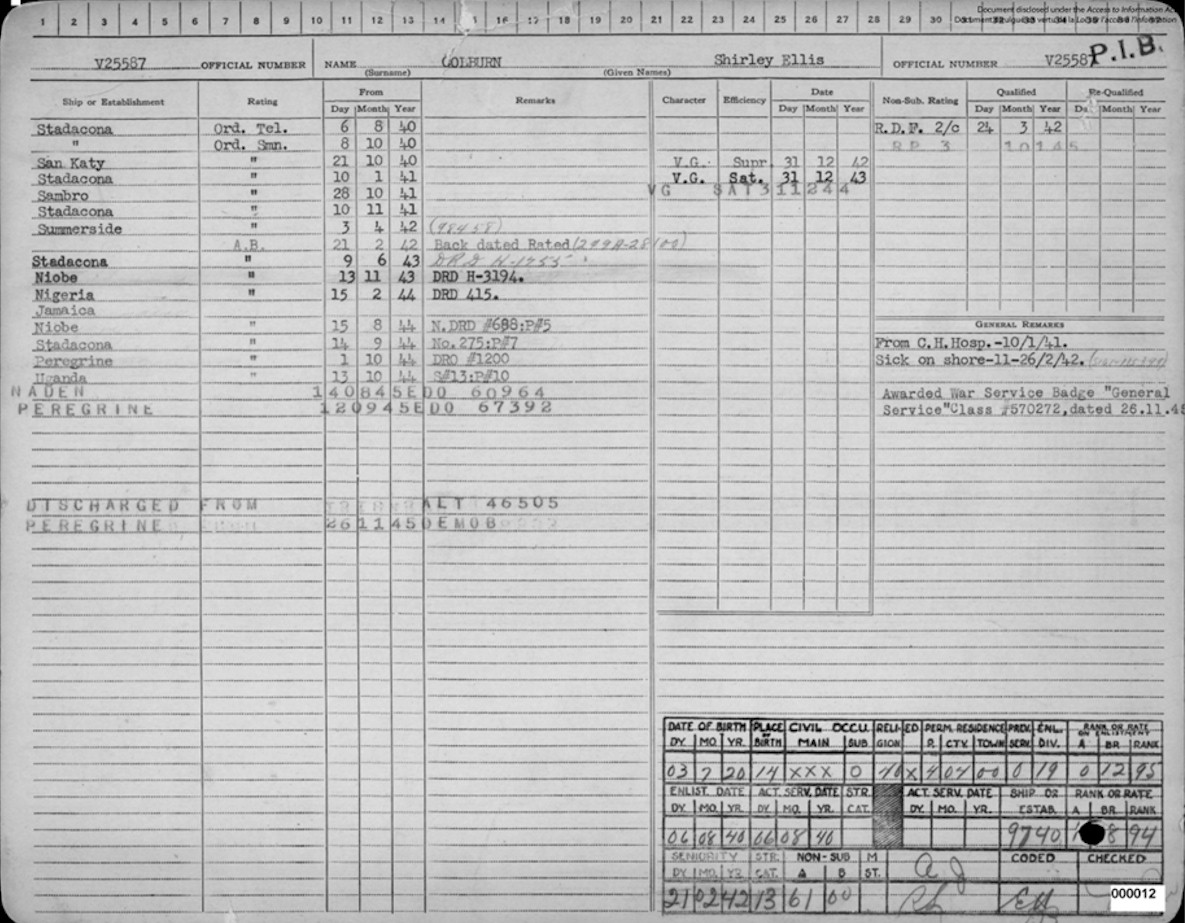 Document disclosed under the Access to Information
1 2 3 4 5 6 7 8 9 10 11 12 13 14 15 16 17 18 19 20 21 22 23 24 25 26 27 28 29 30
V25587 OFFICIAL NUMBER NAME COLBURN Shirley Ellis OFFICIAL NUMBER V25587 P.I.B.
(Surname) (Given Names)
Ship or Establishment Rating From Remarks Character Efficiency Date Non-Sub. Rating Qualified Re-Qualified
Day Month Year Day Month Year Day Month Year Day Month Year
Stadacona Ord. Tel. 6 8 40 R.D.F. 2/c 24 3 42
" Ord. Smn. 8 10 40 RP 3 10145
San Katy " 21 10 40 V.G. Supr 31 12 42
Stadacona " 10 1 41 V.G. Sat. 31 12 43
Sambro " 28 10 41 VG SAT 311244
Stadacona " 10 11 41
Summerside " 3 4 42 (98458)
A.B. 21 2 42 Back dated Rated (299A-28/00)
Stadacona " 9 6 43 DRD H-1755
Niobe " 13 11 43 DRD H-3194.
Nigeria " 15 2 44 DRD 415.
Jamaica
Niobe " 15 8 44 N.DRD #688:P#5
GENERAL REMARKS
Stadacona " 14 9 44 No.275:P#7 From C.H.Hosp.-10/1/41.
Peregrine " 1 10 44 DRO #1200 Sick on shore-11-26/2/42.
Uganda " 13 10 44 S#13:P#10
NADEN 140845EDO 60964 Awarded War Service Badge "General
PEREGRINE 120945EDO 67392 Service"Class #570272,dated 26.11.45
DISCHARGED FROM ALT 46505
PEREGRINE 261145DEMOB
DATE OF BIRTH PLACE OF BIRTH CIVIL OCCU. RELIGION ED PERM. RESIDENCE PREV. SERV. ENL. DIV. RANK OR RATE ON ENLISTMENT
DY. MO. YR. MAIN SUB P. CTY. TOWN A BR. RANK
03 7 20 14 XXX 0 40 X 4 04 00 0 19 0 12 95
ENLIST. DATE ACT. SERV. DATE STR. ACT. SERV. DATE SHIP OR RANK OR RATE
DY. MO. YR. DY. MO. YR. CAT. DY. MO. YR. ESTAB. A BR. RANK
06 08 40 06 08 40 9740 8 94
SENIORITY STR. NON-SUB M CODED CHECKED
DY. MO. YR. CAT. A B ST.
21 02 42 13 61 00
000012